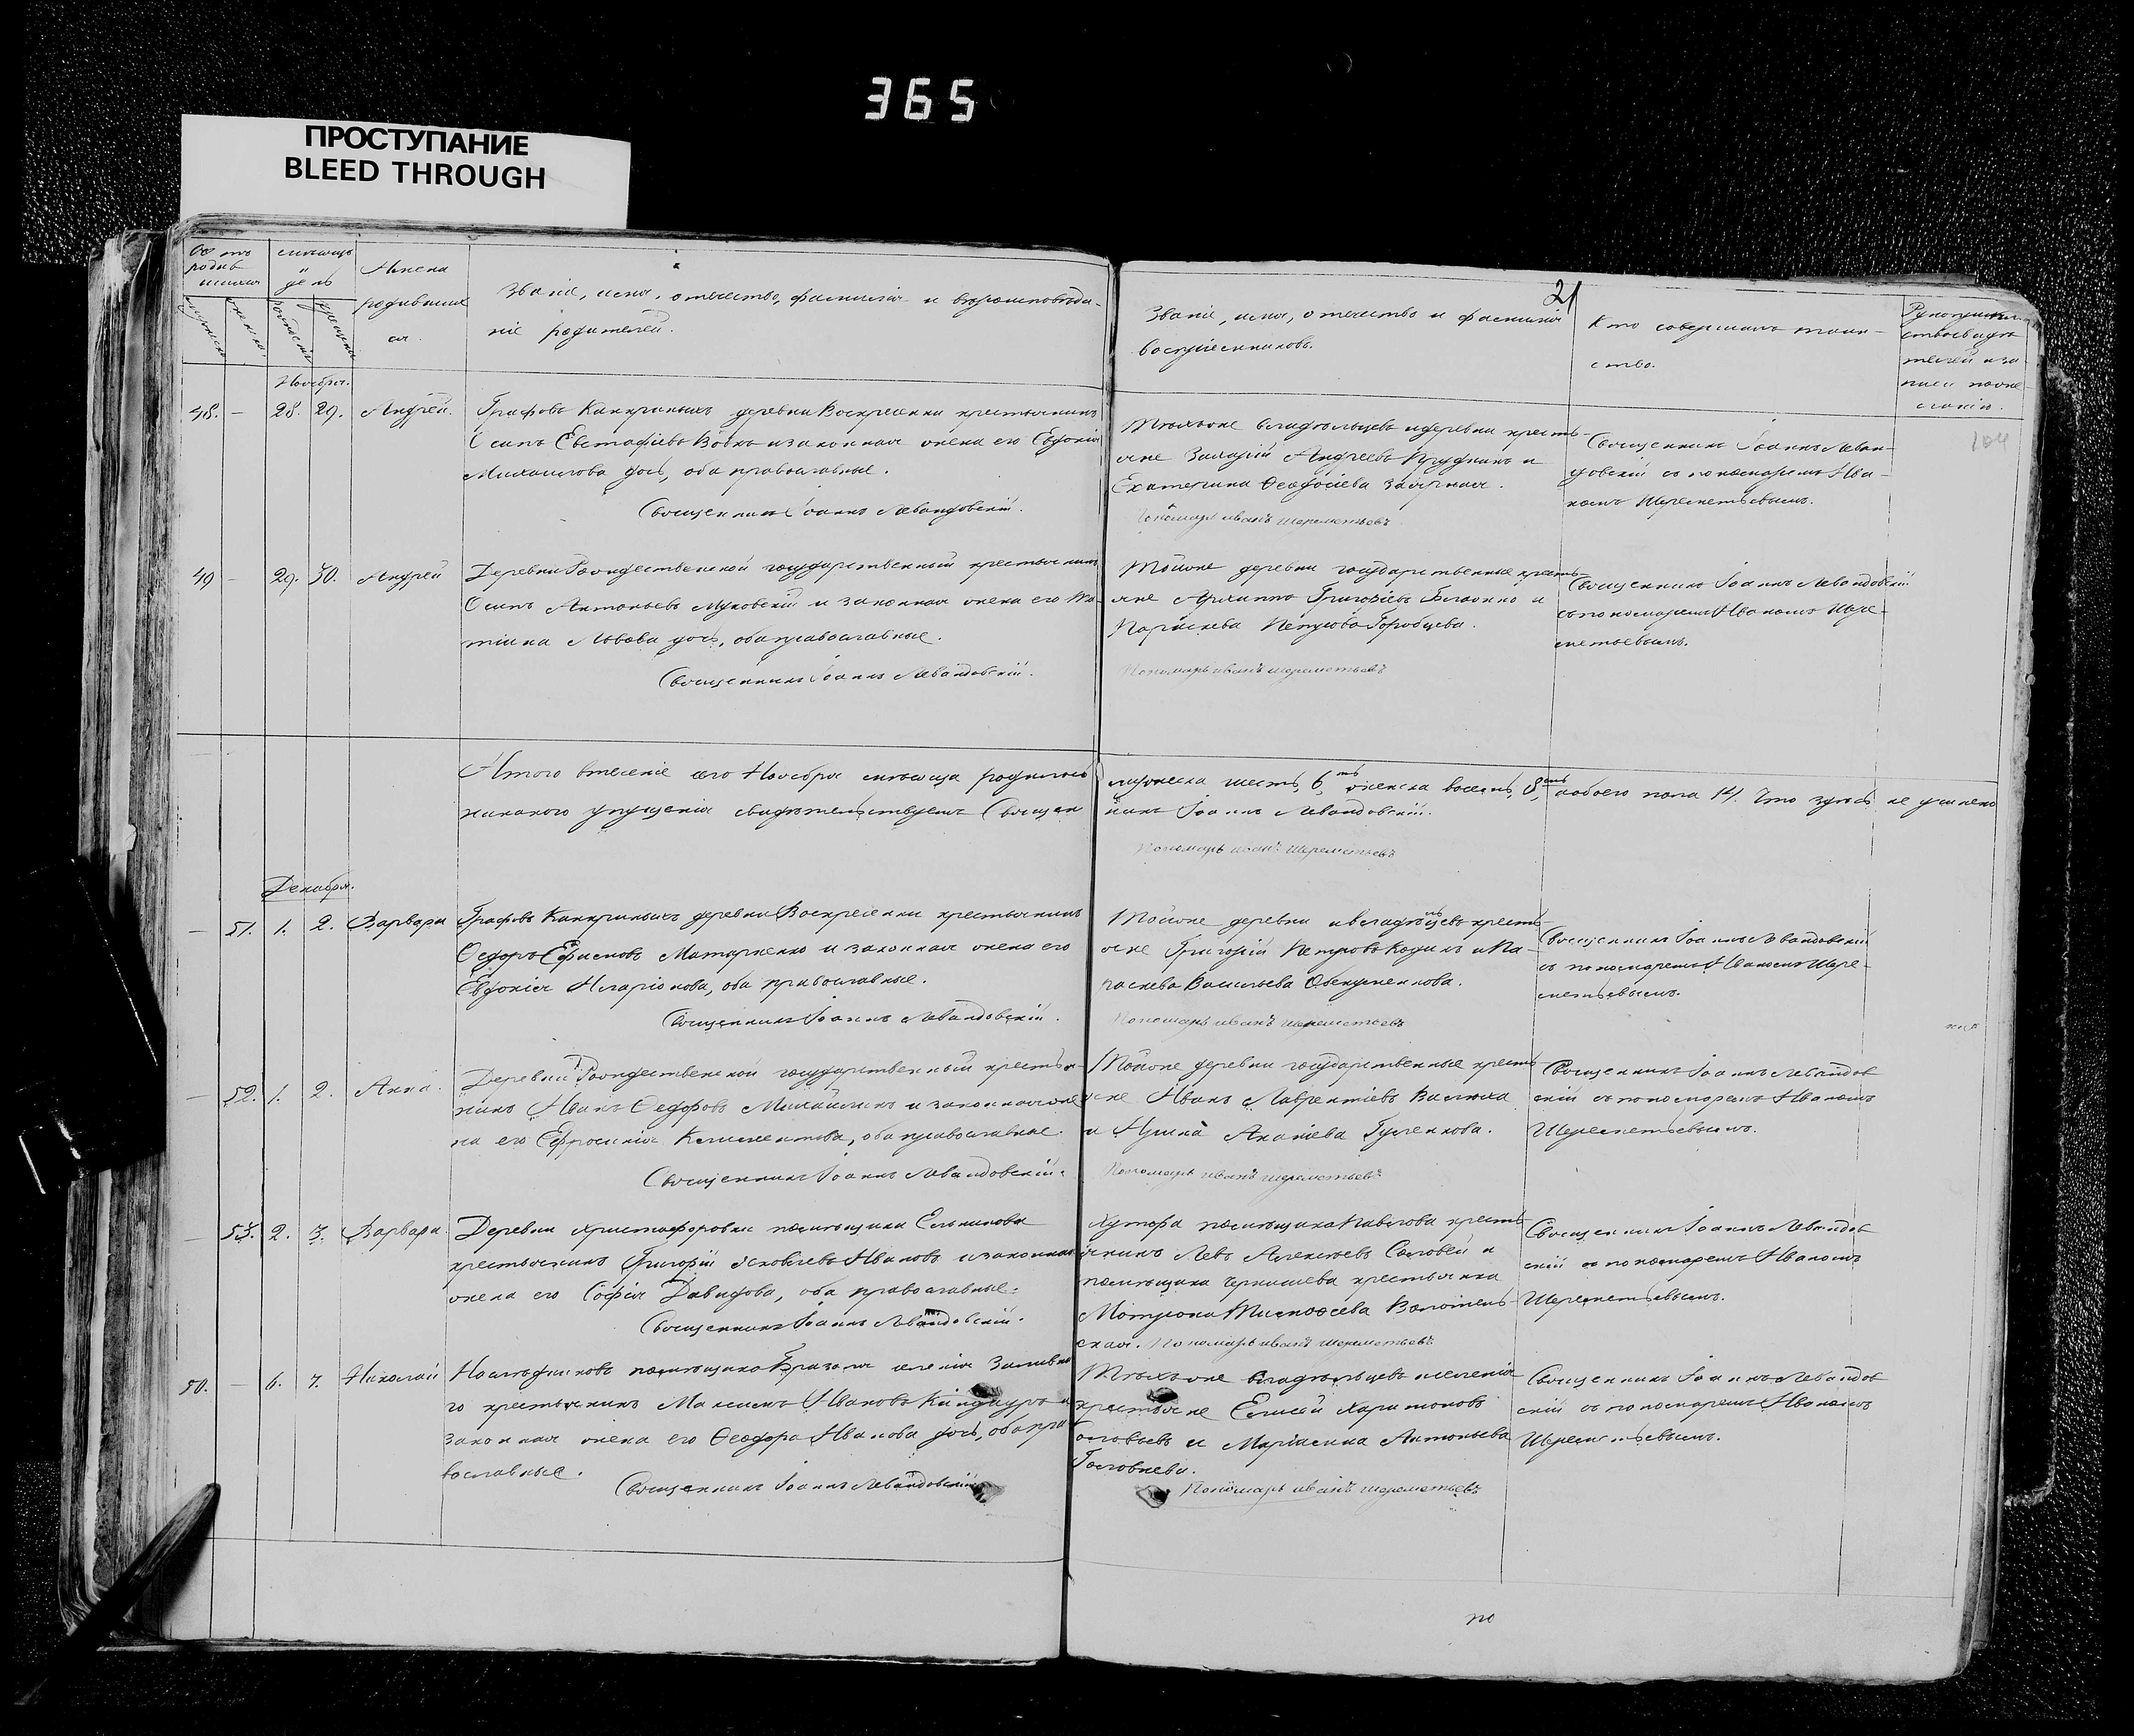 365
ПРОСТУПАНИЕ
BLEED THROUGH
21
Имена
родивших
ся.
Званіе, имя, отечество, фамилія и вѣроисповѣда-
ніе родителей.
Званіе, имя, отечество и фамилія
воспріемниковъ.
Кто совершалъ таин-
ство.
104
Ноября.
48. — 28. 29. Андрей.
Графовъ Канкриныхъ деревни Воскресенки крестьянинъ
Осипъ Евстафіевъ Вовкъ и законная жена его Евдокія
Михаилова дочь, оба православные.
Священникъ Іоаннъ Левандовскій.
Тѣхъ же владѣльцевъ и деревни кресть-
яне Захарій Андреевъ и
Екатерина Ѳеодосіева
Пономарь иванъ шереметьевъ
Священникъ Іоаннъ Леван-
довскій съ пономаремъ Ива-
номъ Шереметьевымъ.
49 — 29. 30. Андрей
Деревни Рождественской государственный крестьянинъ
Осипъ Антоньевъ Муховскій и законная жена его
Львова дочь, оба православные.
Священникъ Іоаннъ Левандовскій.
Той же деревни государственные кресть-
яне Архиппъ Григоріевъ и
Параскева Петрова Горобцева.
Пономарь иванъ шереметьевъ
Священникъ Іоаннъ Левандовскій
съ пономаремъ Иваномъ Шере-
метьевымъ.
Итого втеченіе сего Ноября мѣсяца родилось мужеска шесть, 6ть, женска восемь, 8мь, а обоего пола 14. Что здѣсь не учинено
никакого упущенія свидѣтельствуемъ Священникъ Іоаннъ Левандовскій.
Пономарь иванъ Шереметьевъ
Декабря.
— 51. 1. 2. Варвара
Графовъ Канкриныхъ деревни Воскресенки крестьянинъ
Ѳедоръ Ефимовъ Матарженко и законная жена его
Евдокія Иларіонова, оба православные.
Священникъ Іоаннъ Левандовскій.
Той же деревни и владѣльцевъ кресть-
яне Григорій Петровъ Кодинъ и Па-
раскева Васильева
Пономарь иванъ шереметьевъ
Священникъ Іоаннъ Левандовскій
съ пономаремъ Иваномъ Шере-
метьевымъ.
— 52. 1. 2. Анна.
Деревни Рождественской государственный крестья-
нинъ Иванъ Ѳедоровъ Михайлинъ и законная же-
на его Ефросинія Климентова, оба православные.
Священникъ Іоаннъ Левандовскій.
Той же деревни государственные кресть-
яне Иванъ Лаврентіевъ Васюха
и Ирина Акакіева Гуленкова.
Пономарь иванъ шереметьевъ
Священникъ Іоаннъ Левандов
скій съ пономаремъ Иваномъ
Шереметьевымъ.
— 53. 2. 3. Варвара.
Деревни Христофоровки помѣщика Ельникова
крестьянинъ Григорій Яковлевъ Ивановъ и законная
жена его Софія Давидова, оба православные.
Священникъ Іоаннъ Левандовскій.
Хутора помѣщика Павлова кресть
янинъ Левъ Алексѣевъ Соловей и
помѣщика Чернышева крестьянка
Матрона Тимоѳеева
ская. Пономарь иванъ шереметьевъ
Священникъ Іоаннъ Левандов
скій съ пономаремъ Иваномъ
Шереметьевымъ.
50. — 6. 7. Николай
Наслѣдниковъ помѣщика имѣнія
го крестьянинъ Максимъ Ивановъ и
законная жена его Ѳеодора Иванова дочь, оба пра
вославные.
Священникъ Іоаннъ Левандовскій
Тѣхъ же владѣльцевъ и имѣнія
крестьяне Елисей Харитоновъ
и Маріанна Антоньева
Головнева.
Пономарь иванъ шереметьевъ
Священникъ Іоаннъ Левандов
скій съ пономаремъ Иваномъ
по